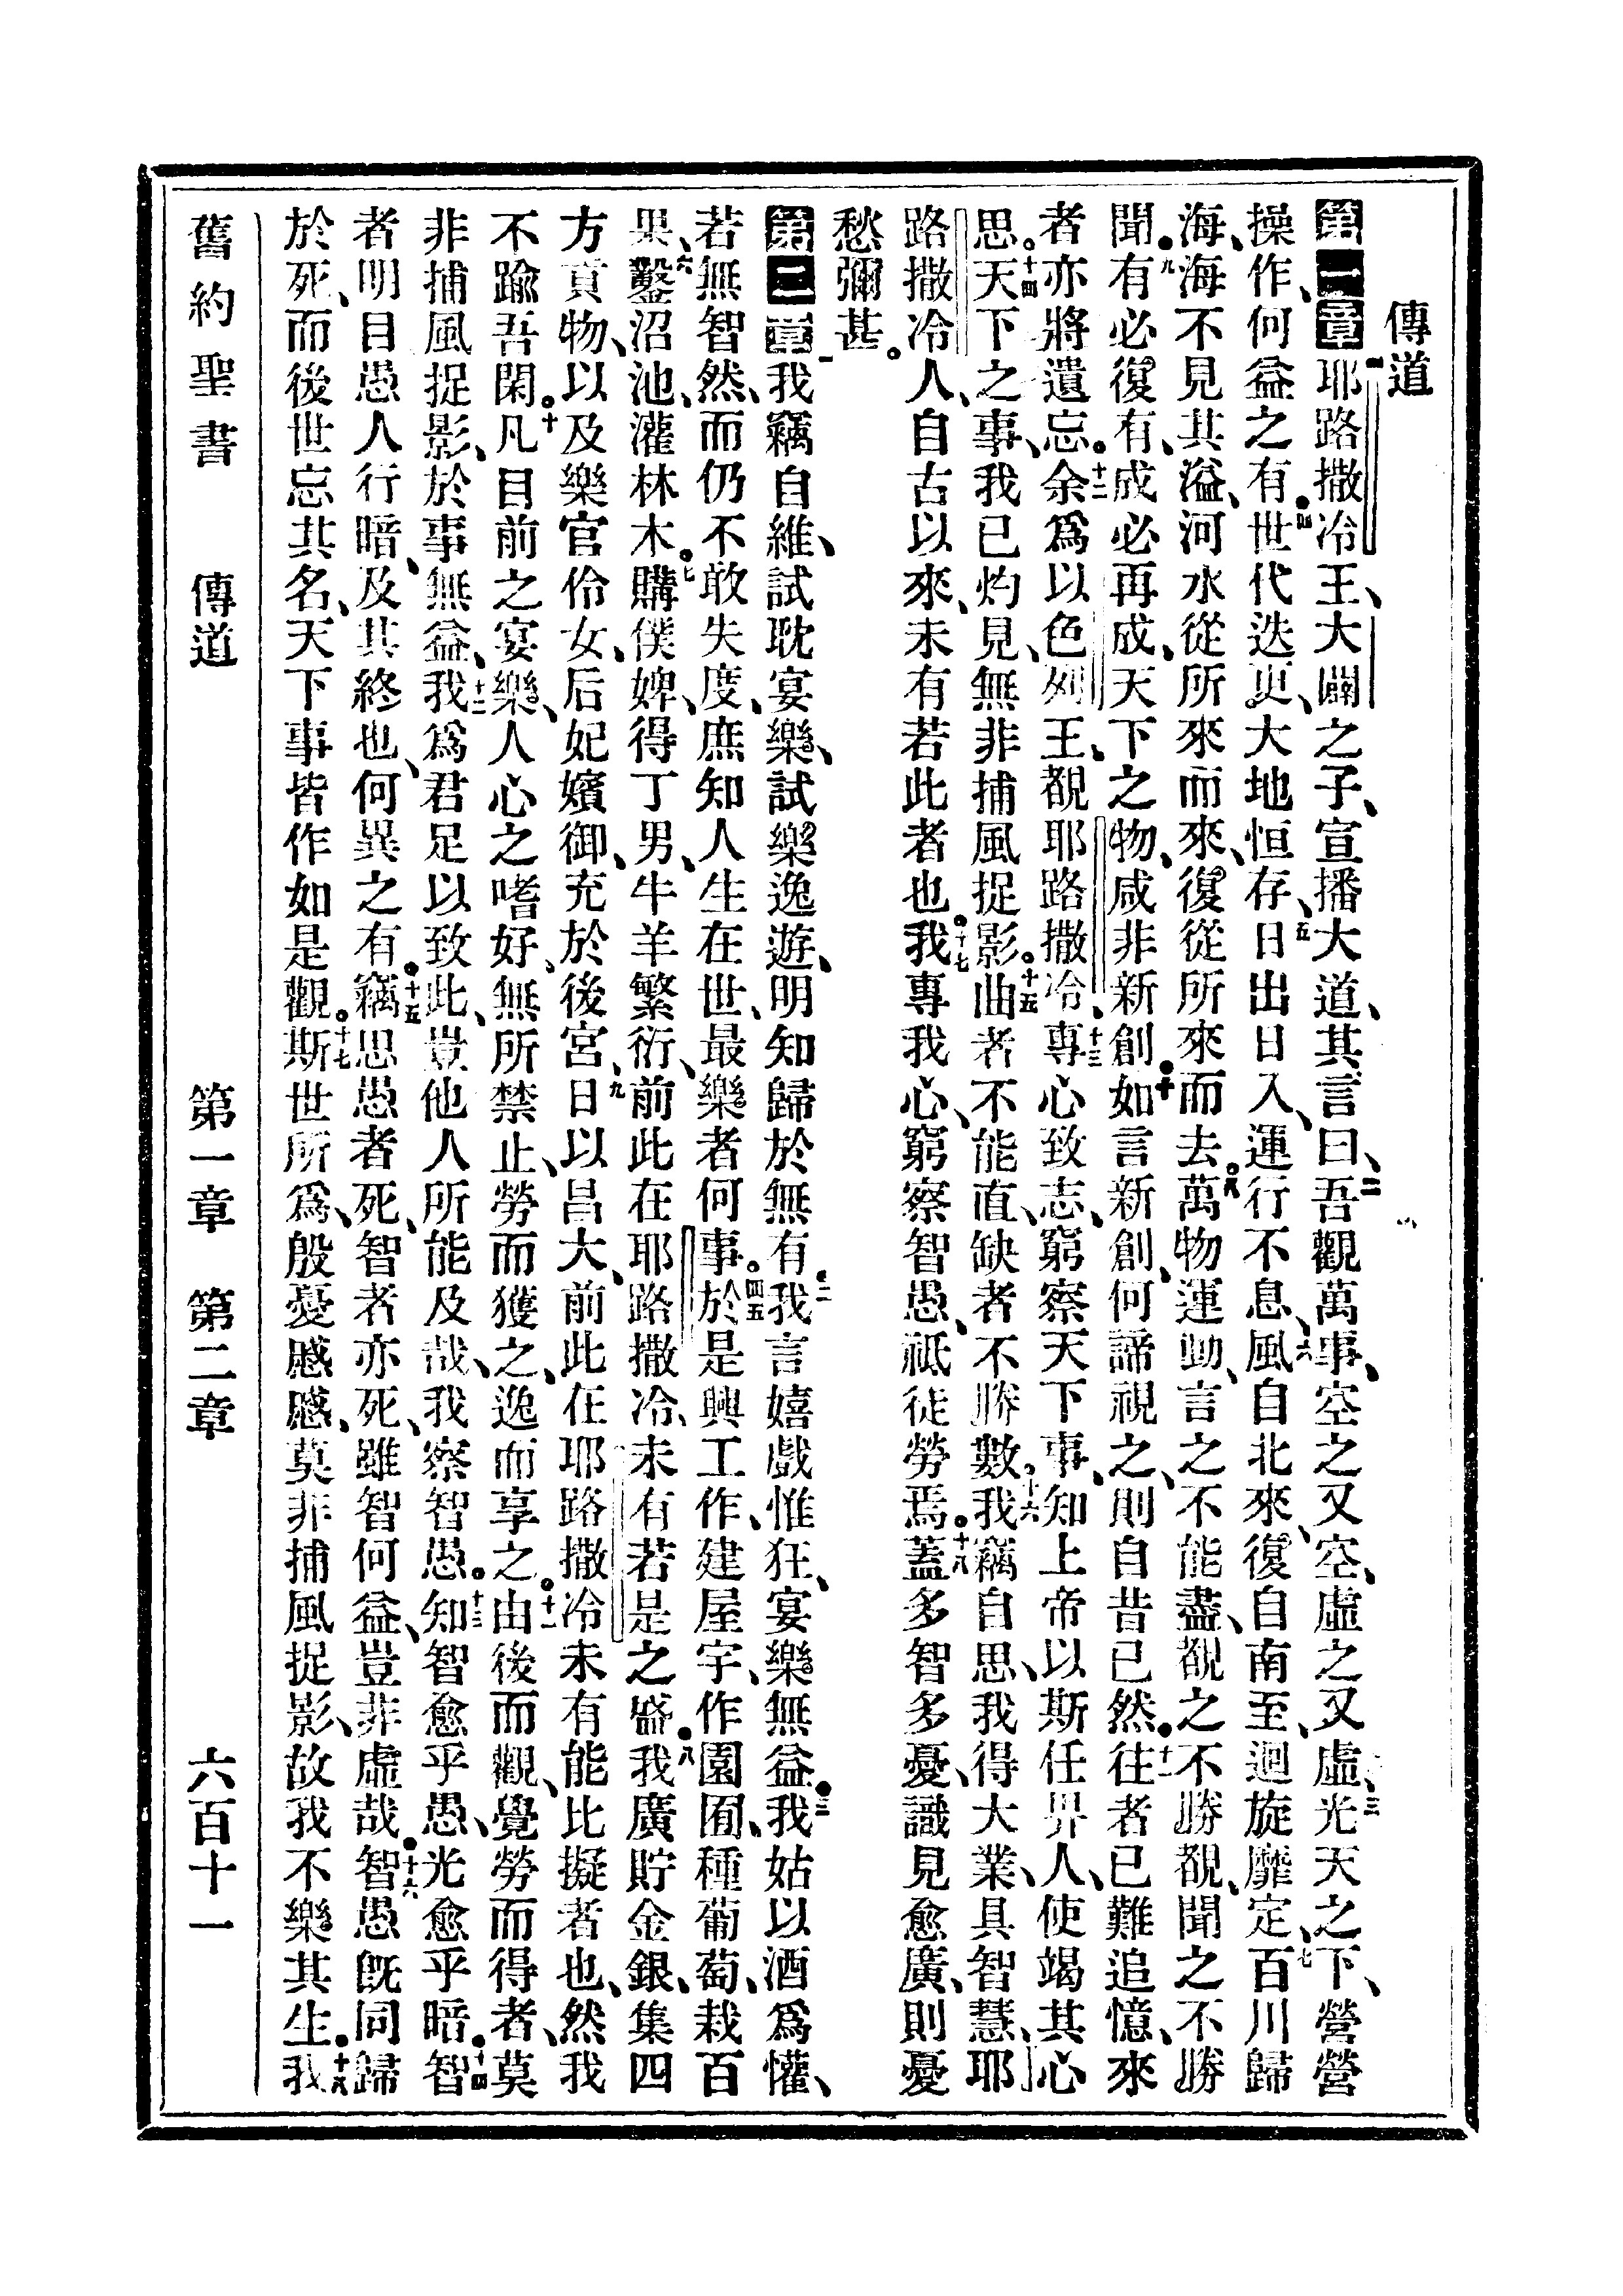 傳道
第一章一耶路撒冷王、大闢之子、宣播大道、其言曰、二吾觀萬事、空之又空、虛之又虛、三光天之下、營營
操作、何益之有。四世代迭更、大地恒存、五日出日入、運行不息、六風自北來、復自南至、迴旋靡定、七百川歸
海、海不見其溢、河水從所來而來、復從所來而去。八萬物運動、言之不能盡、覩之不勝覩、聞之不勝
聞。九有必復有、成必再成、天下之物、咸非新創。十如言新創、何諦視之、則自昔已然。十一往者已難追憶、來
者亦將遺忘。十二余爲以色列王、覩耶路撒冷、十三專心致志、窮察天下事、知上帝以斯任畀人、使竭其心
思。十四天下之事、我已灼見、無非捕風捉影。十五曲者不能直、缺者不勝數。十六我竊自思、我得大業、具智慧、耶
路撒冷人、自古以來、未有若此者也。十七我專我心、窮察智愚、祇徒勞焉。十八蓋多智多憂、識見愈廣、則憂
愁彌甚。
第二章一我竊自維、試耽宴樂、試樂逸遊、明知歸於無有。二我言嬉戲惟狂、宴樂無益。三我姑以酒爲懽、
若無智然、而仍不敢失度、庶知人生在世、最樂者何事。四五於是興工作、建屋宇、作園囿、種葡萄、栽百
果、六鑿沼池、灌林木。七購僕婢、得丁男、牛羊繁衍、前此在耶路撒冷、未有若是之盛。八我廣貯金銀、集四
方貢物、以及樂官伶女、后妃嬪御、充於後宮、九日以昌大、前此在耶路撒冷未有能比擬者也、然我
不踰吾閑。十凡目前之宴樂、人心之嗜好、無所禁止、勞而獲之、逸而享之。十一由後而觀、覺勞而得者、莫
非捕風捉影、於事無益、十二我爲君足以致此、豈他人所能及哉、我察智愚。十三知智愈乎愚、光愈乎暗。十四智
者明目愚人行暗、及其終也、何異之有。十五竊思愚者死、智者亦死、雖智何益、豈非虛哉。十六智愚旣同歸
於死、而後世忘其名、天下事皆作如是觀。十七斯世所爲、殷憂慼慼、莫非捕風捉影、故我不樂其生。十八我
舊約聖書 傳道 第一章 第二章 六百十一